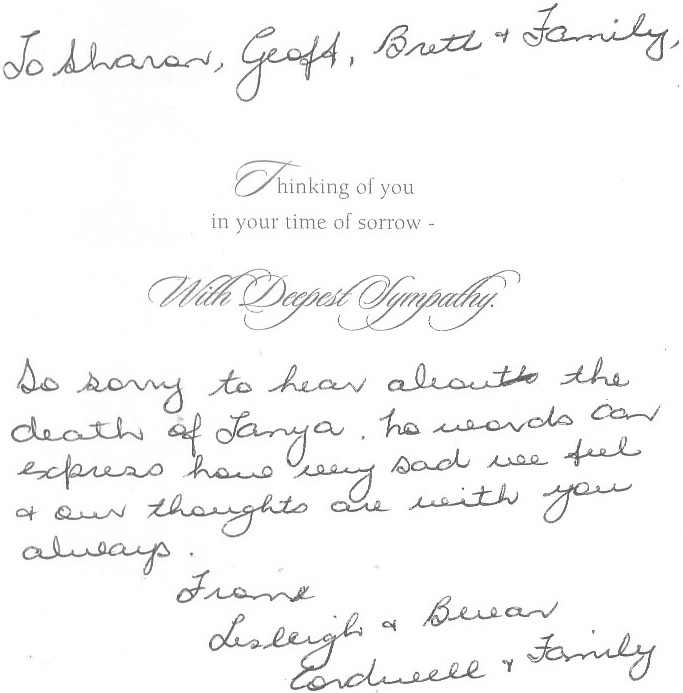 To Sharon, Geoff, Brett & Family,
Thinking of you
in your time of sorrow -
With Deepest Sympathy.
So sorry to hear about the
death of Tanya. No words can
express how very sad we feel
& our thoughts are with you
always.
From
Lesleigh &
Cordwell & Family